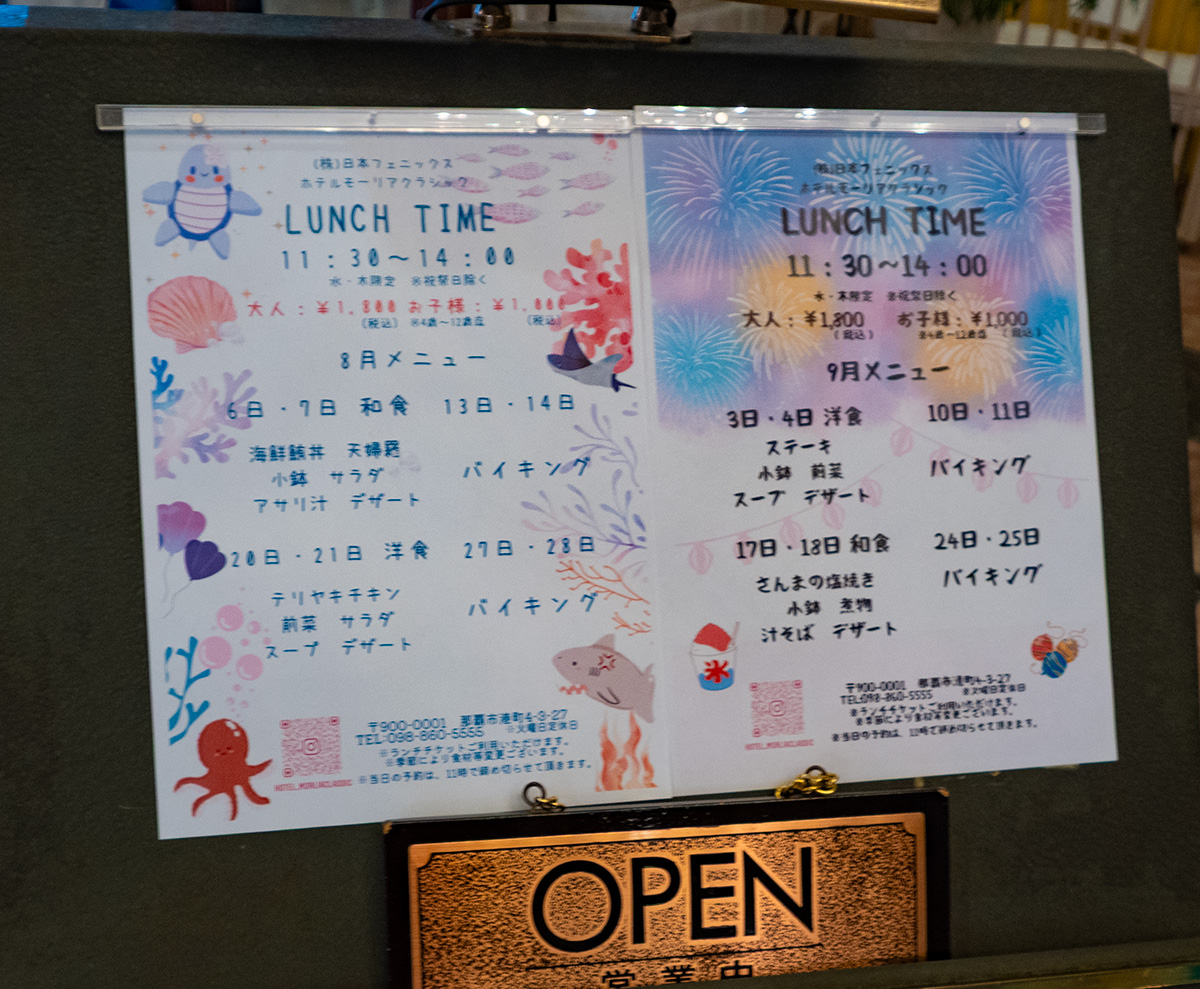 (株)日本フェニックス
ホテルモーリアクラシック
LUNCH TIME
11:30～14:00
水・木限定 ※祝祭日除く
大人:¥1,800 お子様:¥1,000
(税込) ※4歳～12歳迄 (税込)
8月メニュー
6日・7日 和食 13日・14日
海鮮鮪丼 天婦羅
小鉢 サラダ バイキング
アサリ汁 デザート
20日・21日 洋食 27日・28日
テリヤキチキン
前菜 サラダ バイキング
スープ デザート
〒900-0001 那覇市港町4-3-27
TEL:098-860-5555 ※火曜日定休日
※ランチチケットご利用いただけます。
※季節により食材等変更ございます。
※当日の予約は、11時で締め切らせて頂きます。
HOTEL_MORIACLASSIC
(株)日本フェニックス
ホテルモーリアクラシック
LUNCH TIME
11:30～14:00
水・木限定 ※祝祭日除く
大人:¥1,800 お子様:¥1,000
(税込) ※4歳～12歳迄 (税込)
9月メニュー
3日・4日 洋食 10日・11日
ステーキ
小鉢 前菜 バイキング
スープ デザート
17日・18日 和食 24日・25日
さんまの塩焼き バイキング
小鉢 煮物
汁そば デザート
氷
〒900-0001 那覇市港町4-3-27
TEL:098-860-5555 ※火曜日定休日
※ランチチケットご利用いただけます。
※季節により食材等変更ございます。
※当日の予約は、11時で締め切らせて頂きます。
HOTEL_MORIACLASSIC
OPEN
営業中